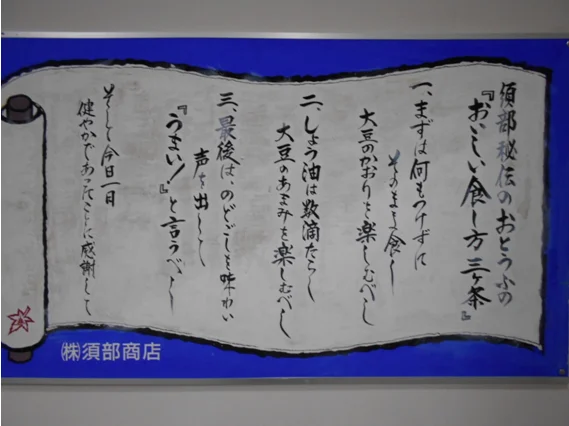 須部秘伝のおとうふの
『おいしい食し方三ヶ条』
一、まずは何もつけずに
そのまま食し
大豆のかおりを楽しむべし
二、しょう油は数滴たらし
大豆のあまみを楽しむべし
三、最後は、のどごしを味わい
声を出して
『うまい!』と言うべし
そして今日一日
健やかであったことに感謝して
㈱須部商店